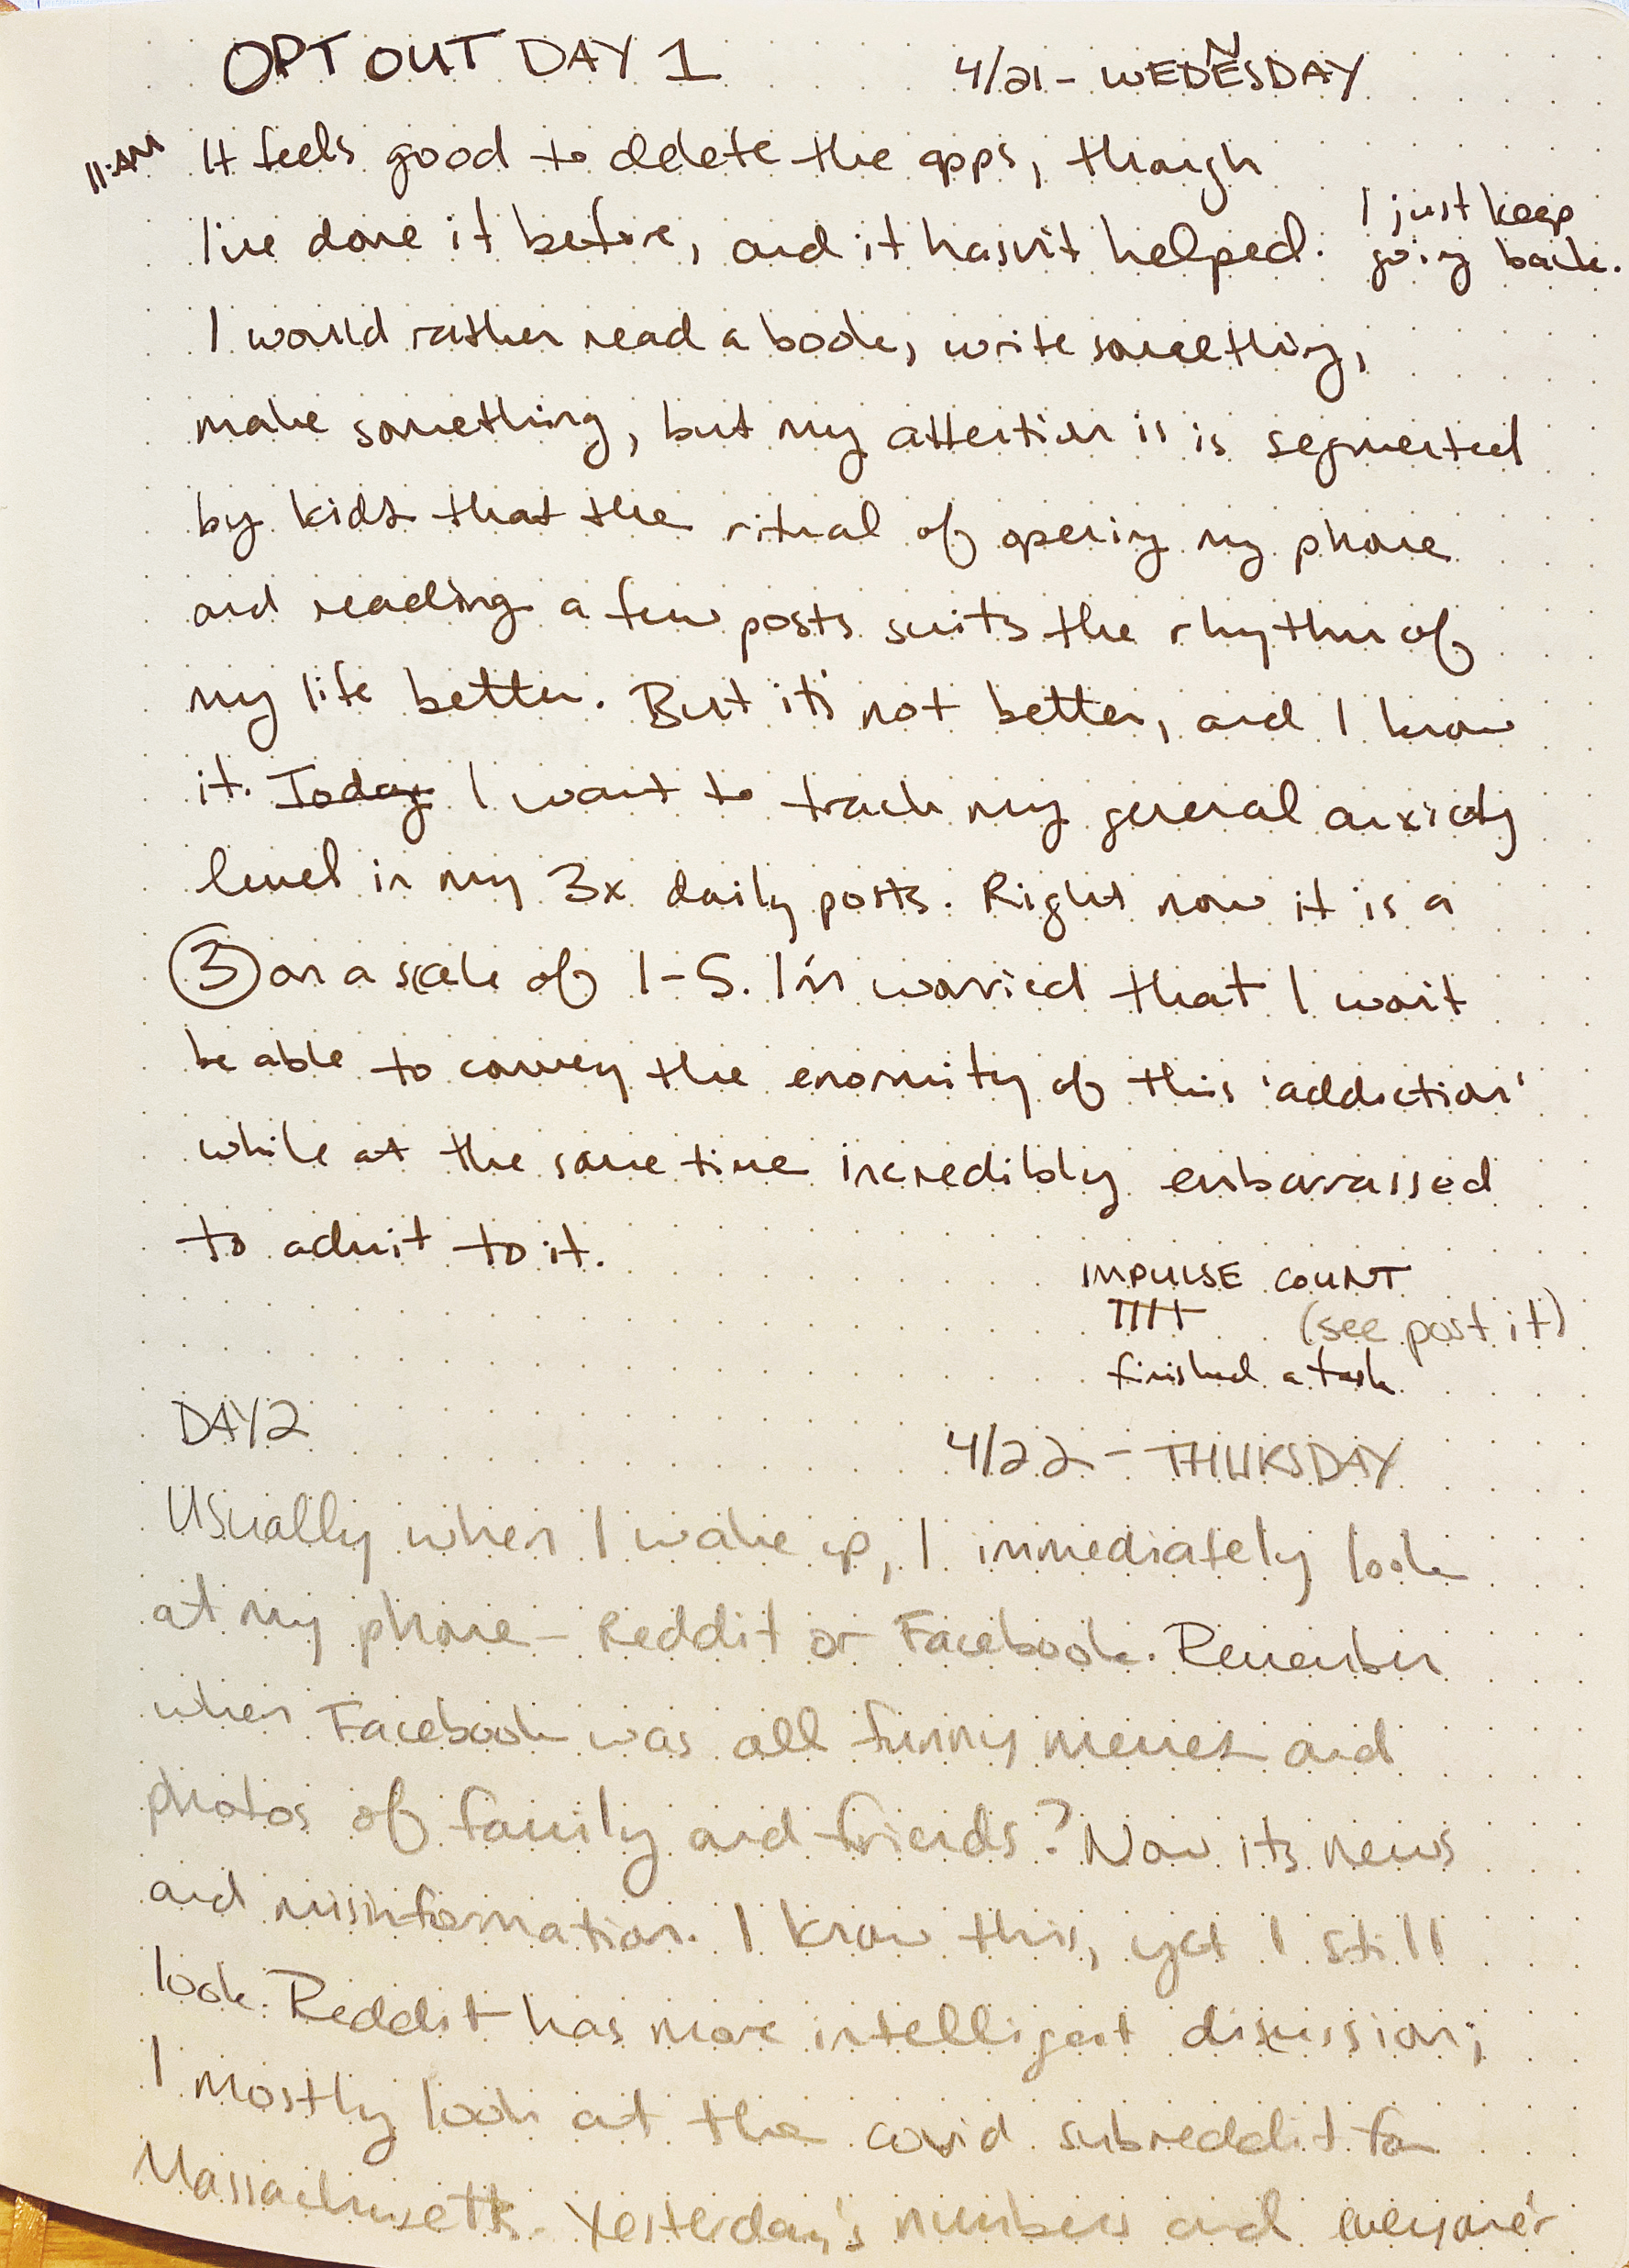 OPT OUT DAY 1 4/21 - WEDNESDAY
11 AM It feels good to delete the apps, though
I've done it before, and it hasn't helped. I just keep
going back.
I would rather read a book, write something,
make something, but my attention is is segmented
by kids that the ritual of opening my phone
and reading a few posts suits the rhythm of
my life better. But it's not better, and I know
it. Today I want to track my general anxiety
level in my 3x daily posts. Right now it is a
3 on a scale of 1-5. I'm worried that I won't
be able to convey the enormity of this 'addiction'
while at the same time incredibly embarrassed
to admit to it.
IMPULSE COUNT
(see post it)
finished a task
DAY 2 4/22 - THURSDAY
Usually when I wake up, I immediately look
at my phone - Reddit or Facebook. Remember
when Facebook was all funny memes and
photos of family and friends? Now its news
and misinformation. I know this, yet I still
look. Reddit has more intelligent discussion;
I mostly look at the covid subreddit for
Massachusetts. Yesterday's numbers and everyone's